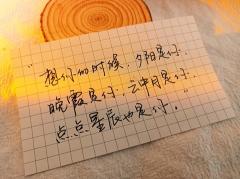 “想你的时候，夕阳是你，
晚霞是你，云中月是你，
点点星辰也是你。”